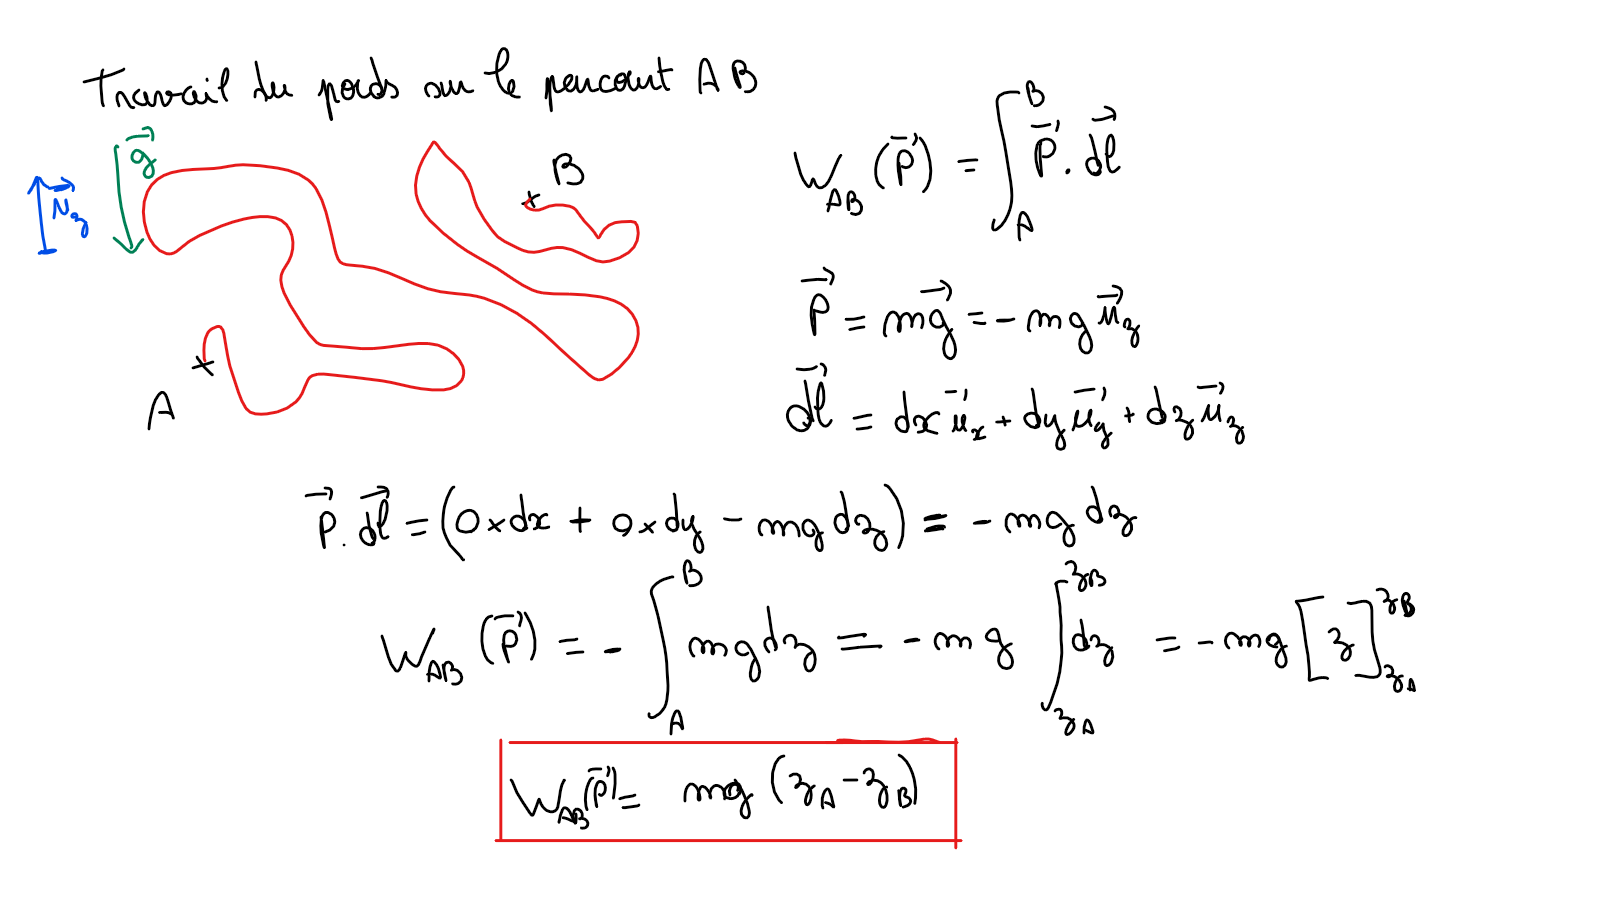 Travail du poids sur le parcourt AB
W_AB (P⃗) = ∫_A^B P⃗ . dl⃗
g⃗
u⃗_z
B
A
P⃗ = mg⃗ = - mg u⃗_z
dl⃗ = dx u⃗_x + dy u⃗_y + dz u⃗_z
P⃗ . dl⃗ = (0 × dx + 0 × dy - mg dz) = - mg dz
W_AB (P⃗) = - ∫_A^B mg dz = - mg ∫_{z_A}^{z_B} dz = - mg [z]_{z_A}^{z_B}
W_AB (P⃗) = mg (z_A - z_B)